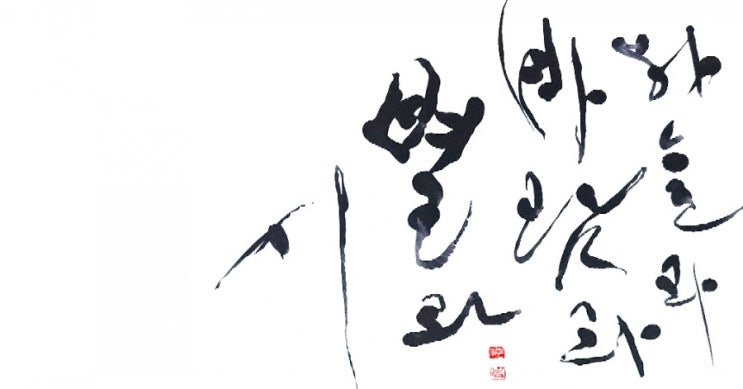 하늘과
바람과
별과
시